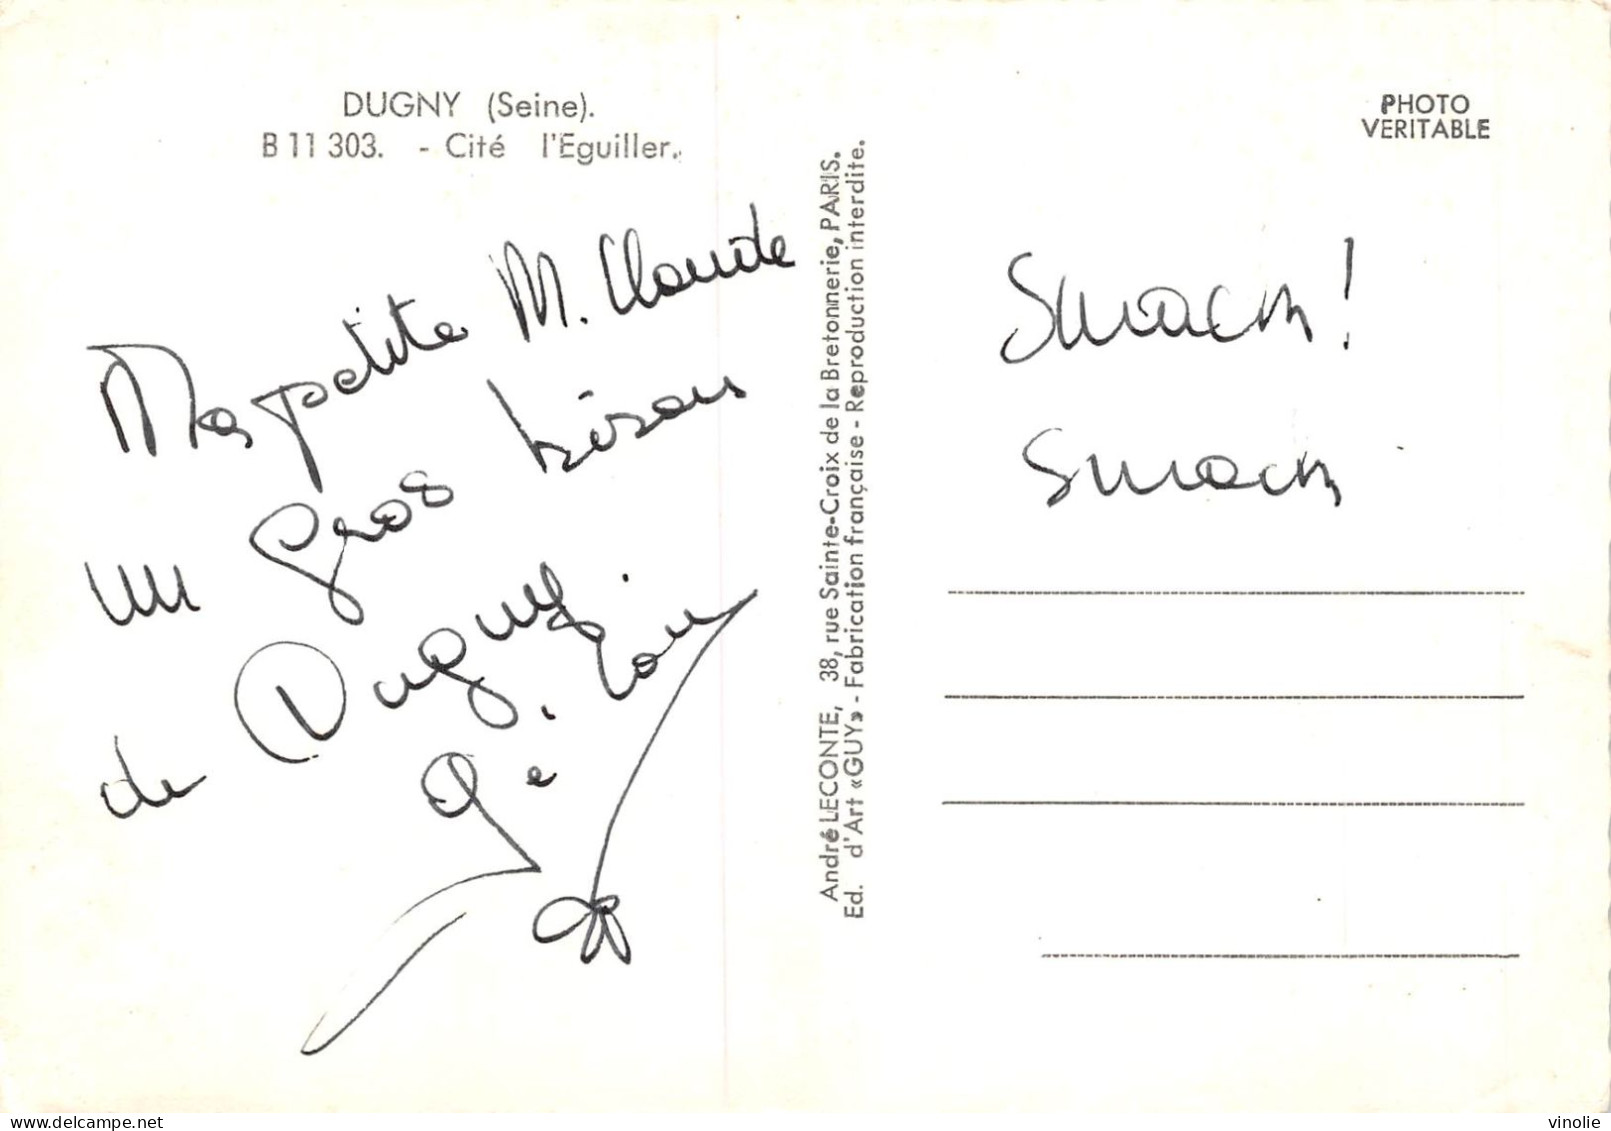 DUGNY (Seine).
B 11 303. - Cité l'Eguiller.
PHOTO
VERITABLE
Ma petite M. Claude
un gros bisou
de Dugny
André LECONTE, 38, rue Sainte-Croix de la Bretonnerie, PARIS.
Ed. d'Art «GUY» - Fabrication française - Reproduction interdite.
Smack !
Smack
vinolie